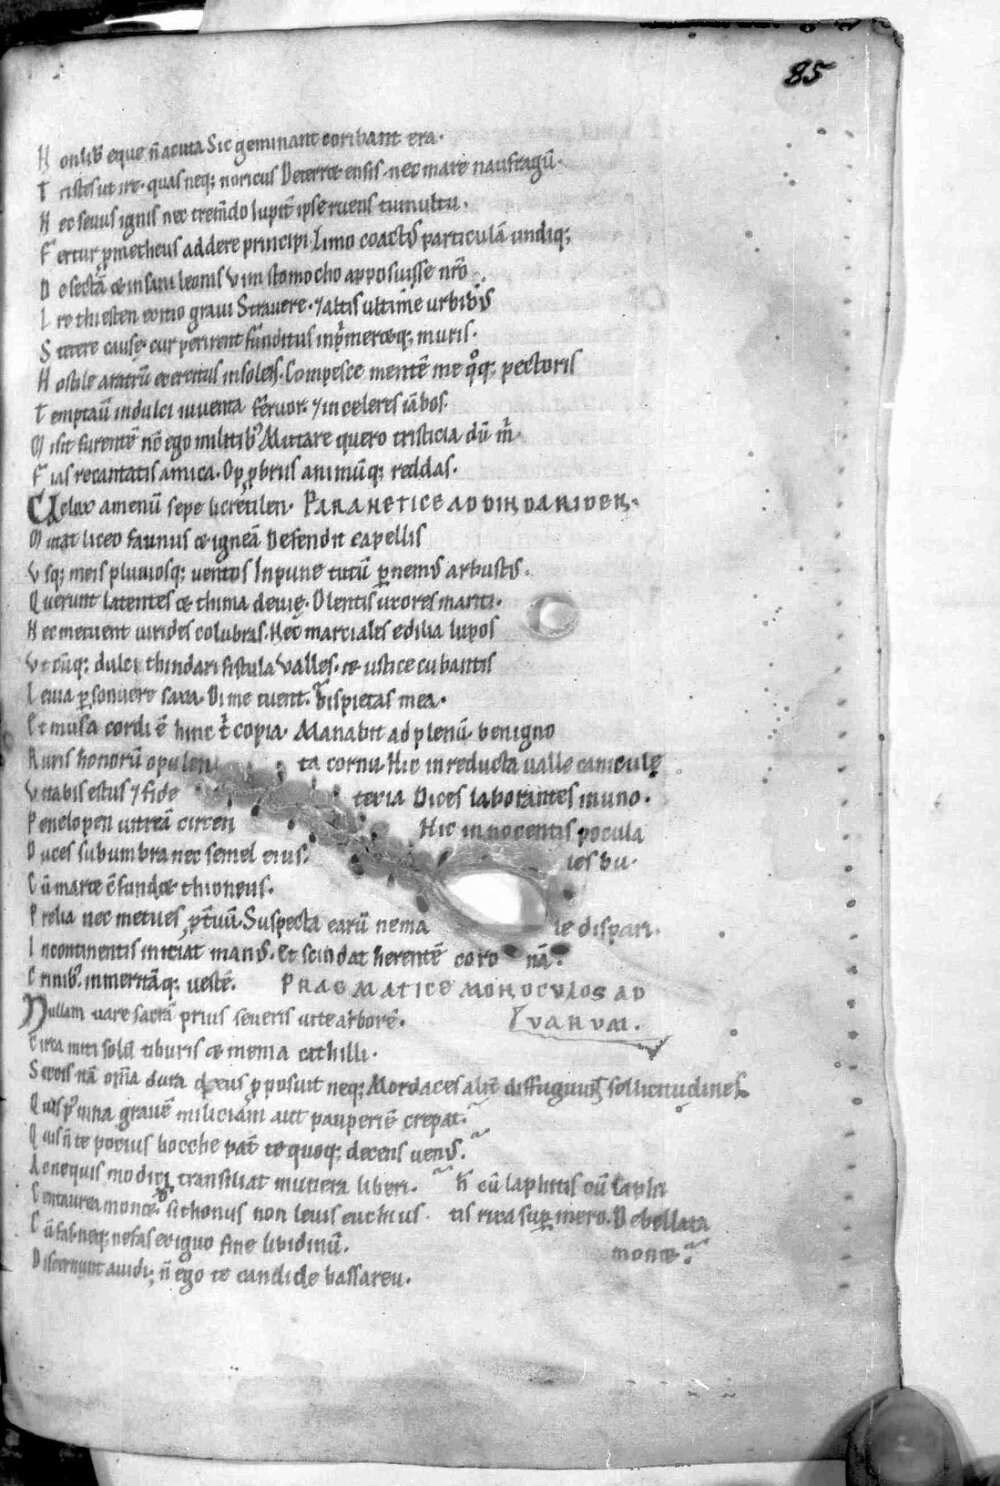 85
H onlib eque n̄ acuta Sic geminant coribant era.
T ristes ut ire. quas neq; noricus Deterret ensis. nec mare naufragū.
N ec sevus ignis nec tremd̄o Iupit̄ ipse ruens tumultu.
F ertur pmetheus addere principi Limo coactꝰ particulā undiq;
D esectā & insani leonis Vim stomocho apposuisse nr̄o
I re thiesten exitio gravi Stravere. 7 altis ultime urbibꝰ
S tetere cause. cur perirent funditus inprimeretq; muris.
H ostile aratrū exercitus insolens. Compesce mentē me qͦq; pectoris
T emptaū indulci iuventa fervor. 7 in celeres iābos.
M isit furentē nc̄ ego mititibꝰ Mutare quero tristicia dū m̄
F ias recantatis amica. Opprobriis animūq; reddas.
Uelox amenū sepe licretilen. PARANETICE AD DINDARIDEN.
M utat liceo faunus & igneā Defendit capellis
V sq; meis pluviosq; ventos Inpune tutū p nemꝰ arbustꝰ.
Q uerunt latentes & thima devie. Olentis uxores mariti.
N ec metuent virides colubras. Nec marciales edilia lupos
V t cūq; dulci thindari fistula Valles. & ustice cubantis
L evia psonuere saxa. Di me tuent. dis pietas mea.
E t musa cordi ē hinc t̄ copia. Manabit ad plenū. benigno
R uris honorū opulenta cornu. Hic in reducta valle canicule
V itabis estus 7 fide teia Dices laborantes in uno.
P enelopen vitreā circen Hic innocentis pocula
D uces sub umbra nec semel eius. ies bu.
C ū marte cf̄undet thioneus.
P relia nec metues pt̄vū. Suspecta earū ne ma le dispari.
I ncontinentis iniciat manꝰ. Et scindat herentē coronā.
C rinibꝰ. inmeritāq; vestē. PRAGMATICE MONOCULOS AD
Nullam vare sacrā prius severis vite arborē. VARUM.
C irca miti solū tiburis & menia cathilli.
S iccis nā om̄a dura deus pposuit neq; Mordaces alit̄ diffugiunt sollicitudines.
Q uis p̄ vina gravē miliciam aut pauperiē crepat.
Q uis n̄ te pocius bocche pat̄ te quoq; decens venꝰ.
A c nequis modici transiliat munera liberi. N cū laphitis cū laphi
C entaurea monet sithonus non levis euchius tis rixa sup mero. Debellata
C ū fas. neq; nefas exiguo fine libidinū. monet.
D iscernunt avidi. n̄ ego te candide bassareu.